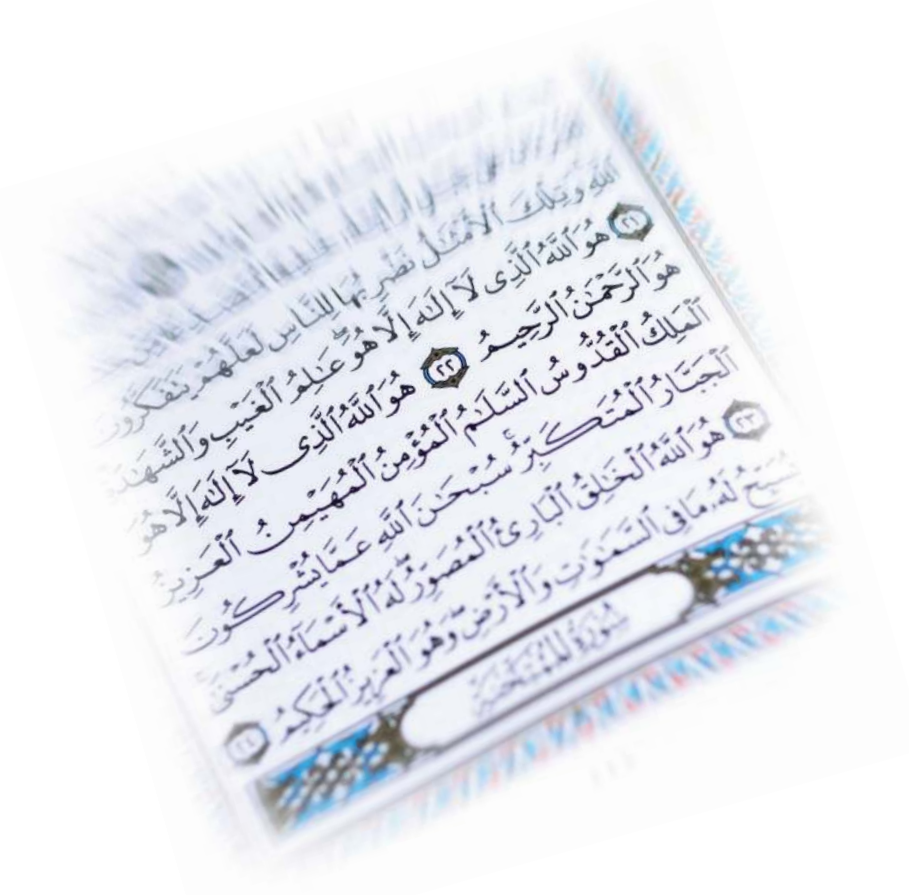 ٱللَّهِ وَتِلْكَ ٱلْأَمْثَٰلُ نَضْرِبُهَا لِلنَّاسِ لَعَلَّهُمْ يَتَفَكَّرُونَ
٢١ هُوَ ٱللَّهُ ٱلَّذِى لَآ إِلَٰهَ إِلَّا هُوَ ۖ عَٰلِمُ ٱلْغَيْبِ وَٱلشَّهَٰدَةِ
هُوَ ٱلرَّحْمَٰنُ ٱلرَّحِيمُ ٢٢ هُوَ ٱللَّهُ ٱلَّذِى لَآ إِلَٰهَ إِلَّا هُوَ
ٱلْمَلِكُ ٱلْقُدُّوسُ ٱلسَّلَٰمُ ٱلْمُؤْمِنُ ٱلْمُهَيْمِنُ ٱلْعَزِيزُ
ٱلْجَبَّارُ ٱلْمُتَكَبِّرُ ۚ سُبْحَٰنَ ٱللَّهِ عَمَّا يُشْرِكُونَ
٢٣ هُوَ ٱللَّهُ ٱلْخَٰلِقُ ٱلْبَارِئُ ٱلْمُصَوِّرُ ۖ لَهُ ٱلْأَسْمَآءُ ٱلْحُسْنَىٰ
يُسَبِّحُ لَهُۥ مَا فِى ٱلسَّمَٰوَٰتِ وَٱلْأَرْضِ ۖ وَهُوَ ٱلْعَزِيزُ ٱلْحَكِيمُ ٢٤
سُورَةُ ٱلْمُمْتَحَنَةِ